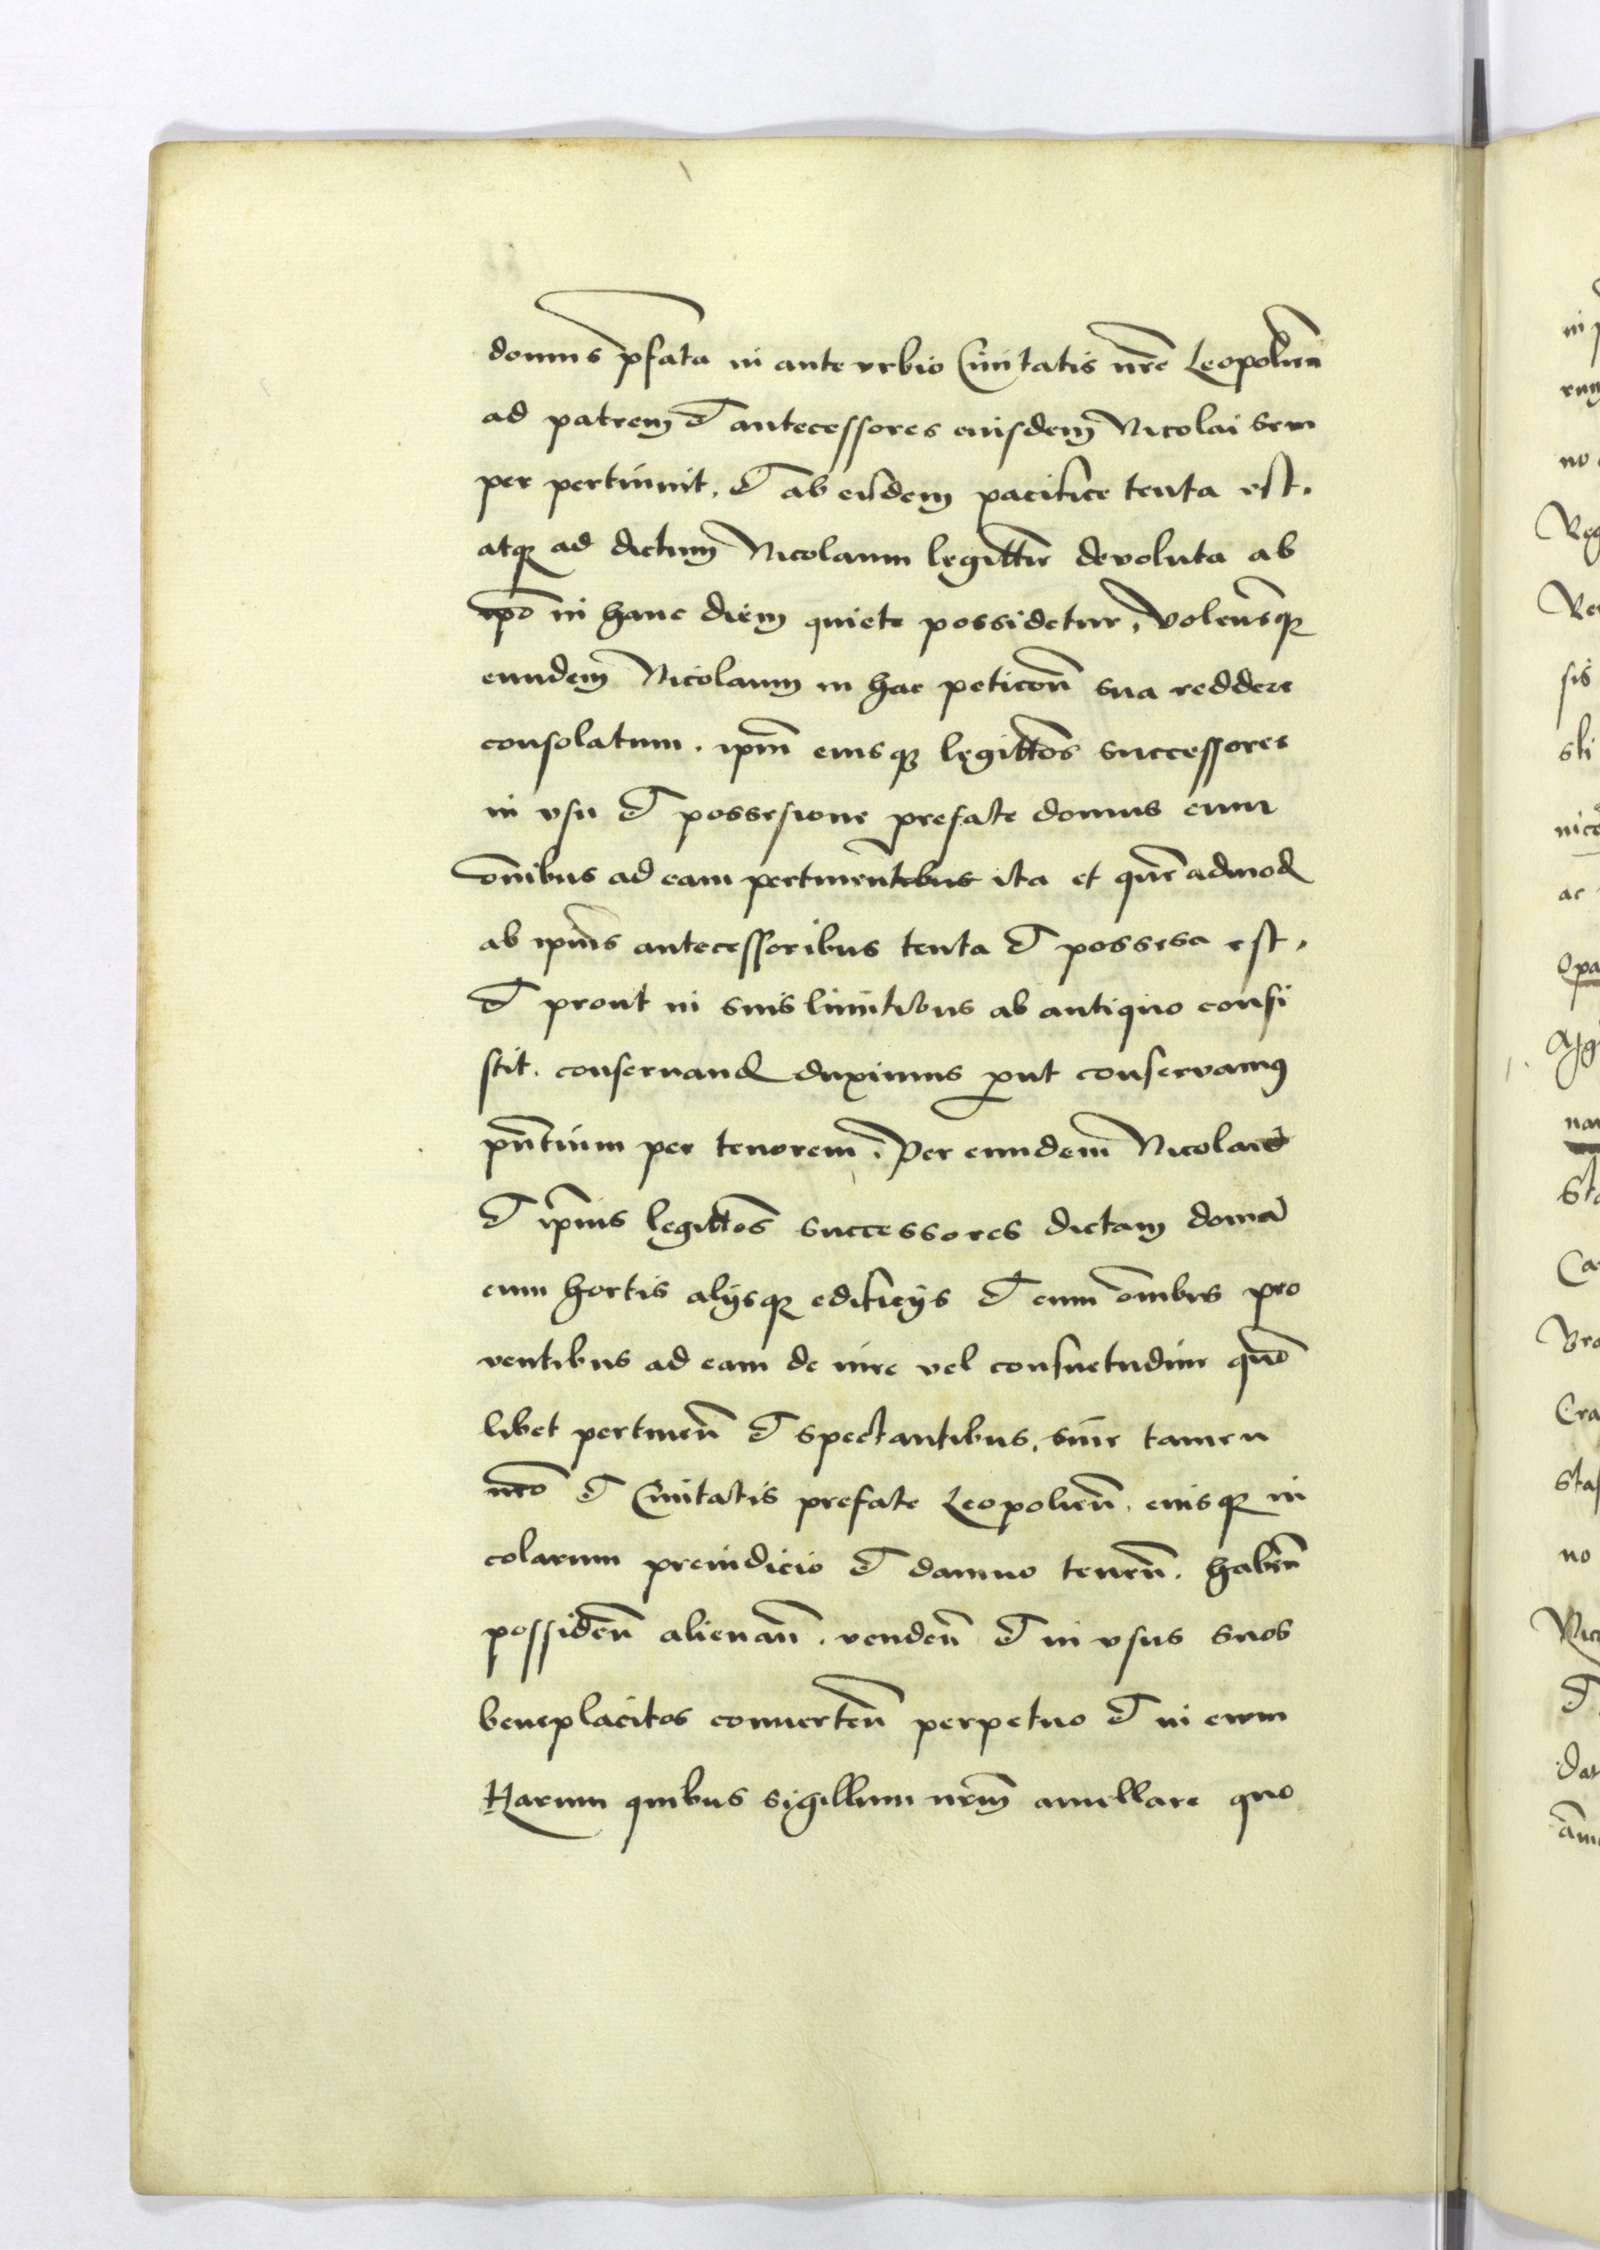 domus p̄fata in ante vrbio Ciuitatis nr̄e Leopolieñ
ad patrem et antecessores eiusdem Nicolai sem
per pertinuit, et ab eisdem pacifice tenta est.
atq3 ad dictum Nicolaum legittie devoluta ab
ip̄o in hanc diem quiete possidetur, Volentesq3
eundem Nicolaum in hac peticoñ sua reddere
consolatum. ip̄m eiusq3 legittos̄ successores
in vsu et possesione prefate domus cum
om̄ibus ad eam pertinen̄tebus ita et quē admod
ab ip̄ius antecessoribus tenta et possesa est,
et prout in suis limitibus ab antiquo consi
stit. conseruand duximus ꝓut conservamꝰ
pn̄tium per tenorem. Per eundem Nicolaū
et ip̄ius legittos̄ successores dictam domū
cum hortis alijsq3 edificijs et cum om̄ibus pro
ventibus ad eam de iure vel consuetudine quō
libet pertineñ et spectantibus, sine tamen
nr̄o et Ciuitatis prefate Leopolieñ. eiusq3 in
colarum preiudicio et damno teneñ. habeñ
possideñ alienañ. vendeñ et in vsus suos
beneplacitos conuerteñ perpetuo et in evum
Harum quibus sigillum nr̄m anullare quo